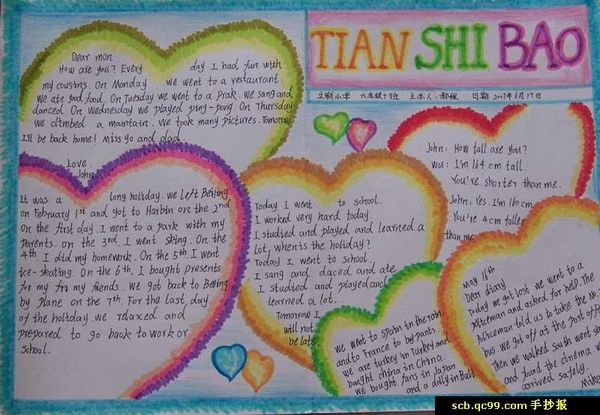 TIAN SHI BAO
小学 六年级 班 主办人: 日期 2007年5月17日
Dear mom
How are you? Every day I had fun with
my cousins. On Monday we went to a restaurant.
We ate good food. On Tuesday we went to a Prak. We sang and
danced. On Wednesday we played ping-pong. On Thursday
We climbed a mountain. We took many pictures. Tomorrow
I'll be back home! Miss yo and dad.
Love.
John
It was a long holiday. We left Beijing
on February 1st and got to Harbin on the 2nd
on the first day. I went to a park with my
Parents. on the 3rd. I went skiing. On the
4th I did my homework. On the 5th I went
ice-skating. On the 6th, I bought presents
for my for my friends. We got back to Beijing
by Plane on the 7th. For the last day
of the holiday. we relaxed and
prepared to go back to work or
school.
Today I went to school.
I worked very hard today.
I studied and played and learned a
lot, when is the holiday?
Today I went to school
I sang and daced and ate
I studied and played and
learned a lot.
Tomorrow I
will not
be late.
John: How tall are you?
Wu: I'm 164 cm tall.
You're shorter than me.
John: Yes. I'm 160cm
You're 4cm taller
than me
we went to Spain in the rain
and to France to buy pants
we are turkey in Turkey and
bought china in China.
We bought fans in Japan
and a daily in Bali
May 16th
Dear diary
Today we got lost. we went to a
Policeman and asked for help. The
Policeman told us to take the No.
bus we got off at the post office
Then we walked south went
and found the cinema. we
arrived safely.
Mike
scb.qc99.com 手抄报